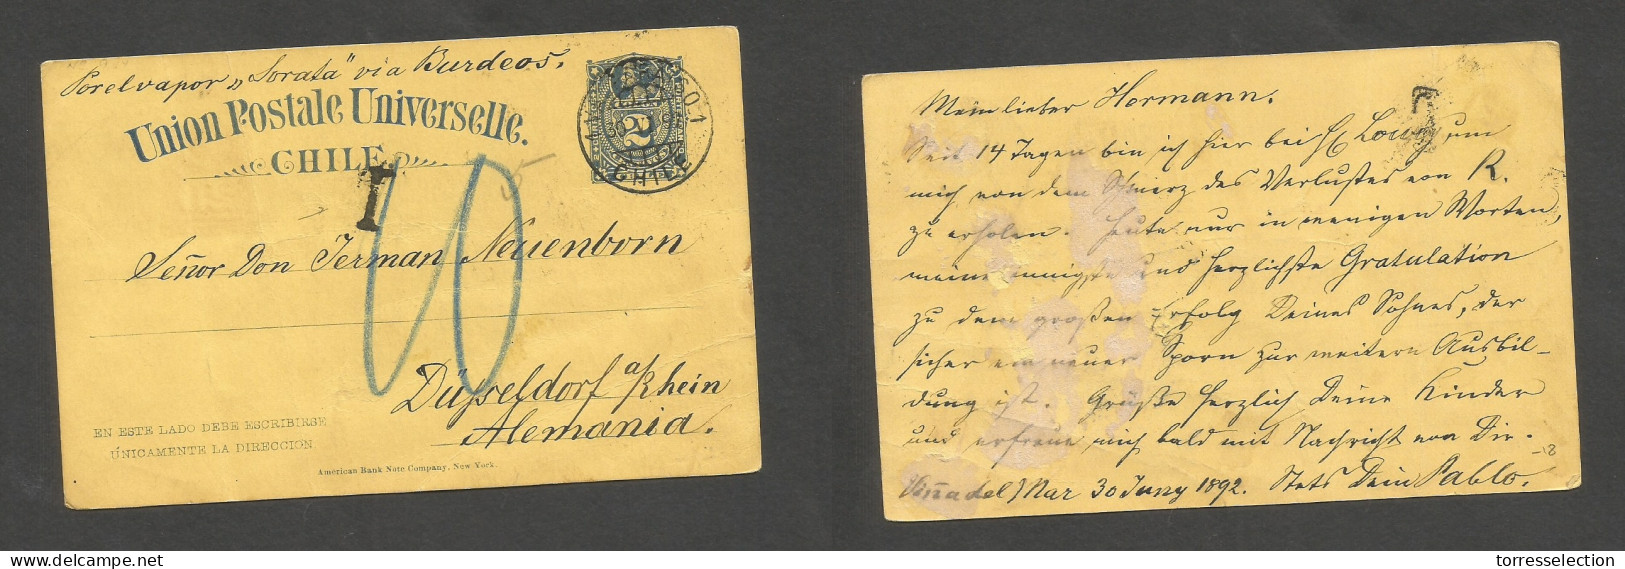 Porelvapor „Sorata" via Burdeos.
Union Postale Universelle.
CHILE
T
2
10
Señor Don German Neuenborn
Düsseldorf a/Rhein
Alemania.
EN ESTE LADO DEBE ESCRIBIRSE
ÚNICAMENTE LA DIRECCION
American Bank Note Company, New York.
Mein lieber Hermann.
Seit 14 Tagen bin ich hier bei um
mich von dem Schmerz des Verlustes von R.
zu erholen. Heute nur in wenigen Worten,
meine innigste und herzlichste Gratulation
zu dem großen Erfolg Deines Sohnes, der
sicher ein neuer Sporn zur weitern Ausbil-
dung ist. Grüße herzlich Deine Kinder
und erfreue mich bald mit Nachricht von Dir.
-18
Viña del Mar 30 Juny 1892. Stets Dein Pablo.
torresselection